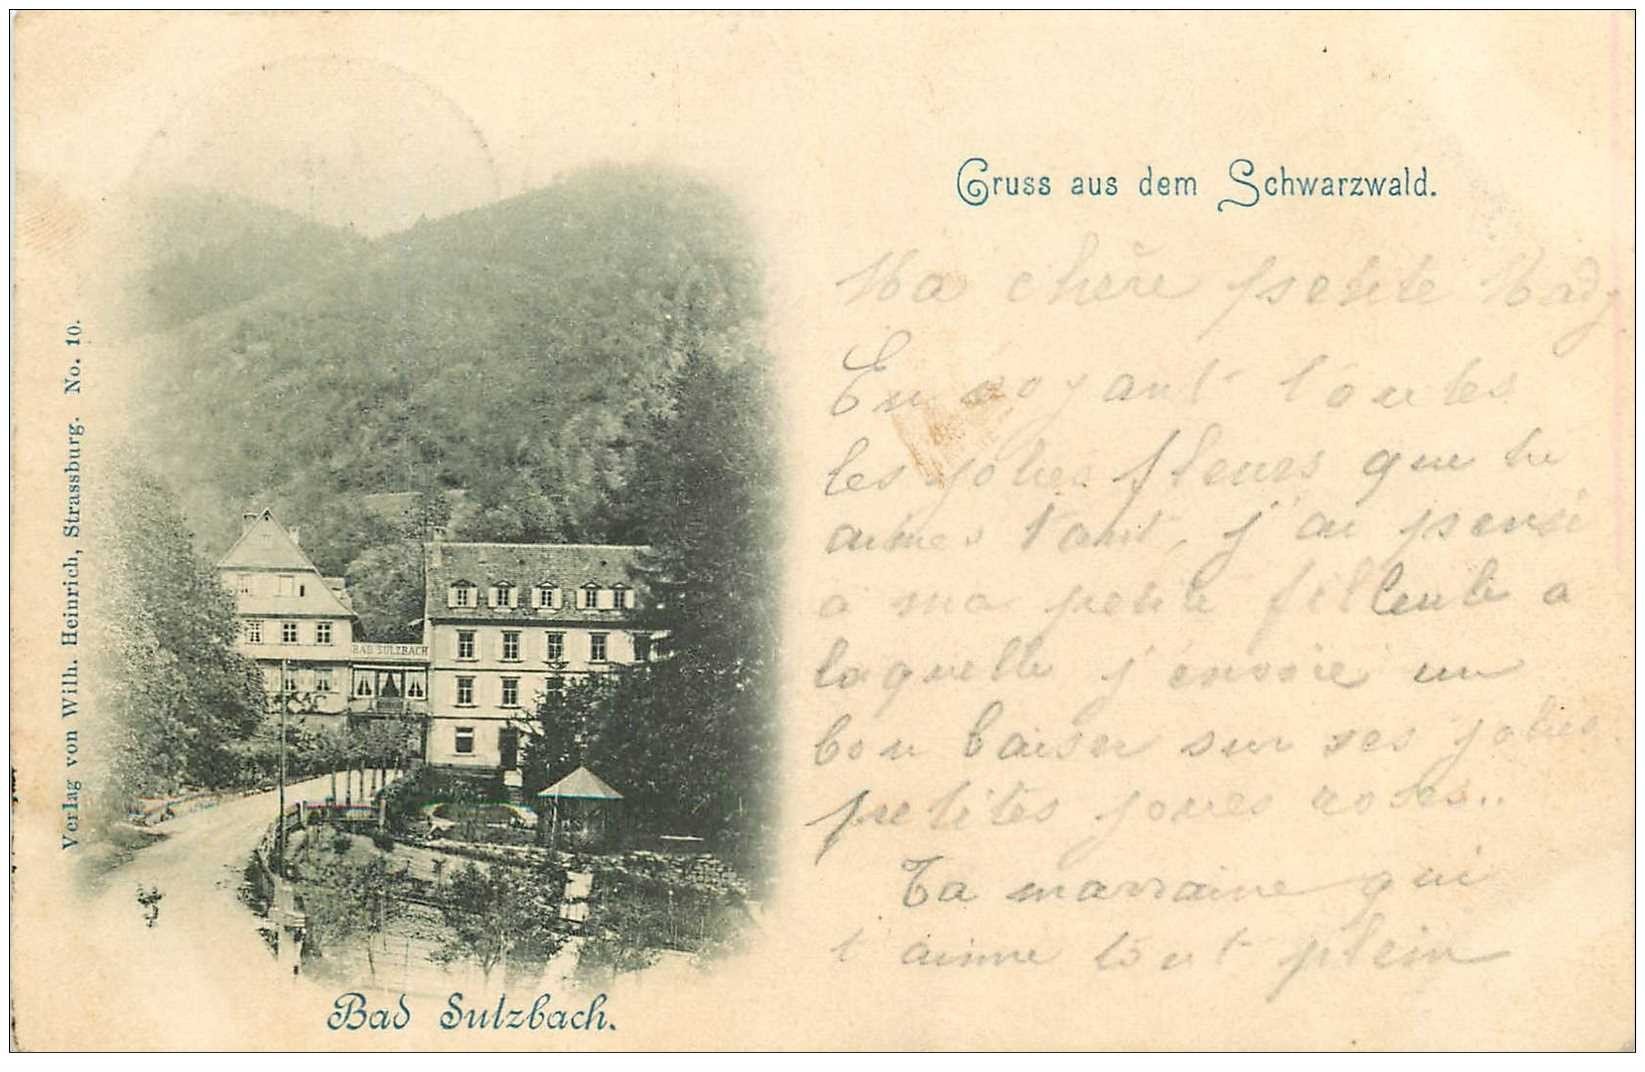 Gruss aus dem Schwarzwald.
Ma chère petite Mady
En voyant toutes
les jolies fleurs que tu
aimes tant, j'ai pensé
a ma petite filleule a
laquelle j'envoie un
bon baiser sur ses jolies
petites joues roses..
Ta marraine qui
t'aime tout plein
BAD SULZBACH
Bad Sulzbach.
Verlag von Wilh. Heinrich, Strassburg. No. 10.